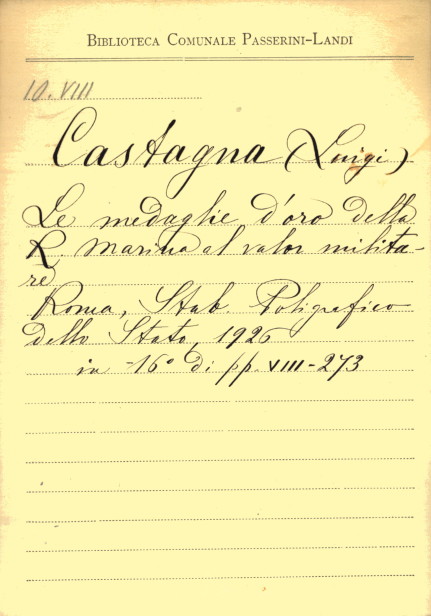 BIBLIOTECA COMUNALE PASSERINI-LANDI
10.VIII
Castagna (Luigi)
Le medaglie d'oro della
R. Marina al valor milita-
re
Roma, Stab. Poligrafico
dello Stato, 1926
in -16° di pp. VIII-273